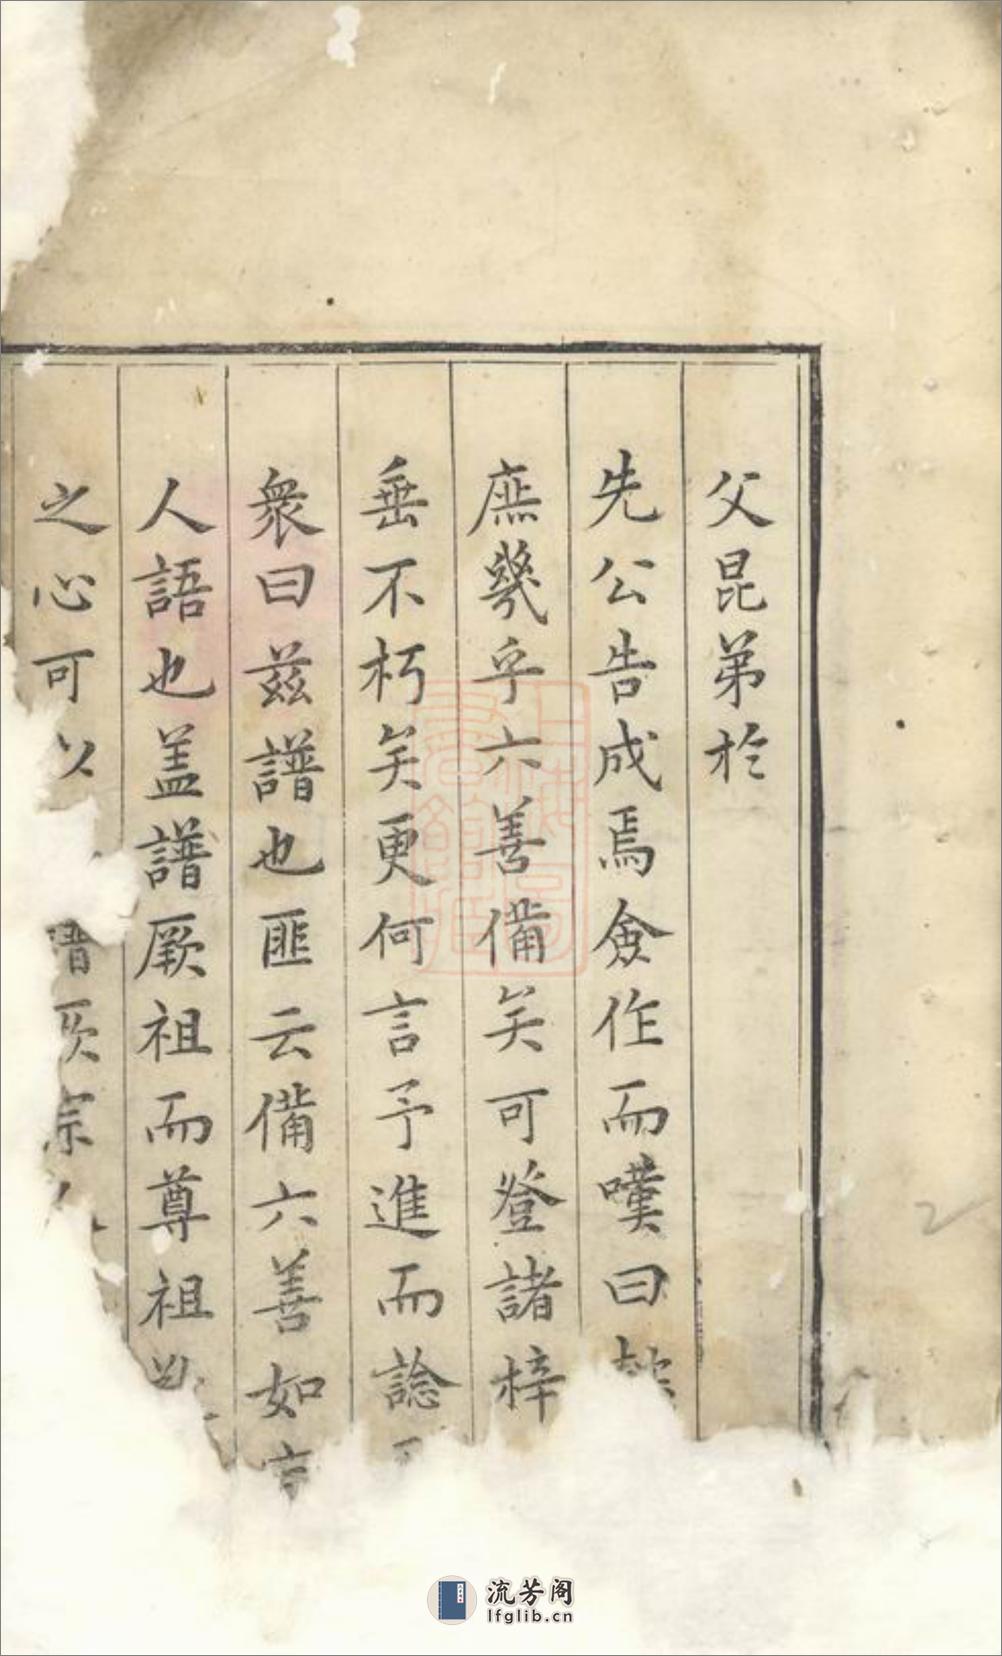 父昆弟於
先公告成焉僉作而嘆曰
庶幾乎六善備矣可登諸梓
垂不朽矣更何言予進而諗
衆曰茲譜也匪云備六善如
人語也盖譜厥祖而尊祖
之心可以譜厥宗
流芳阁
lfglib.cn